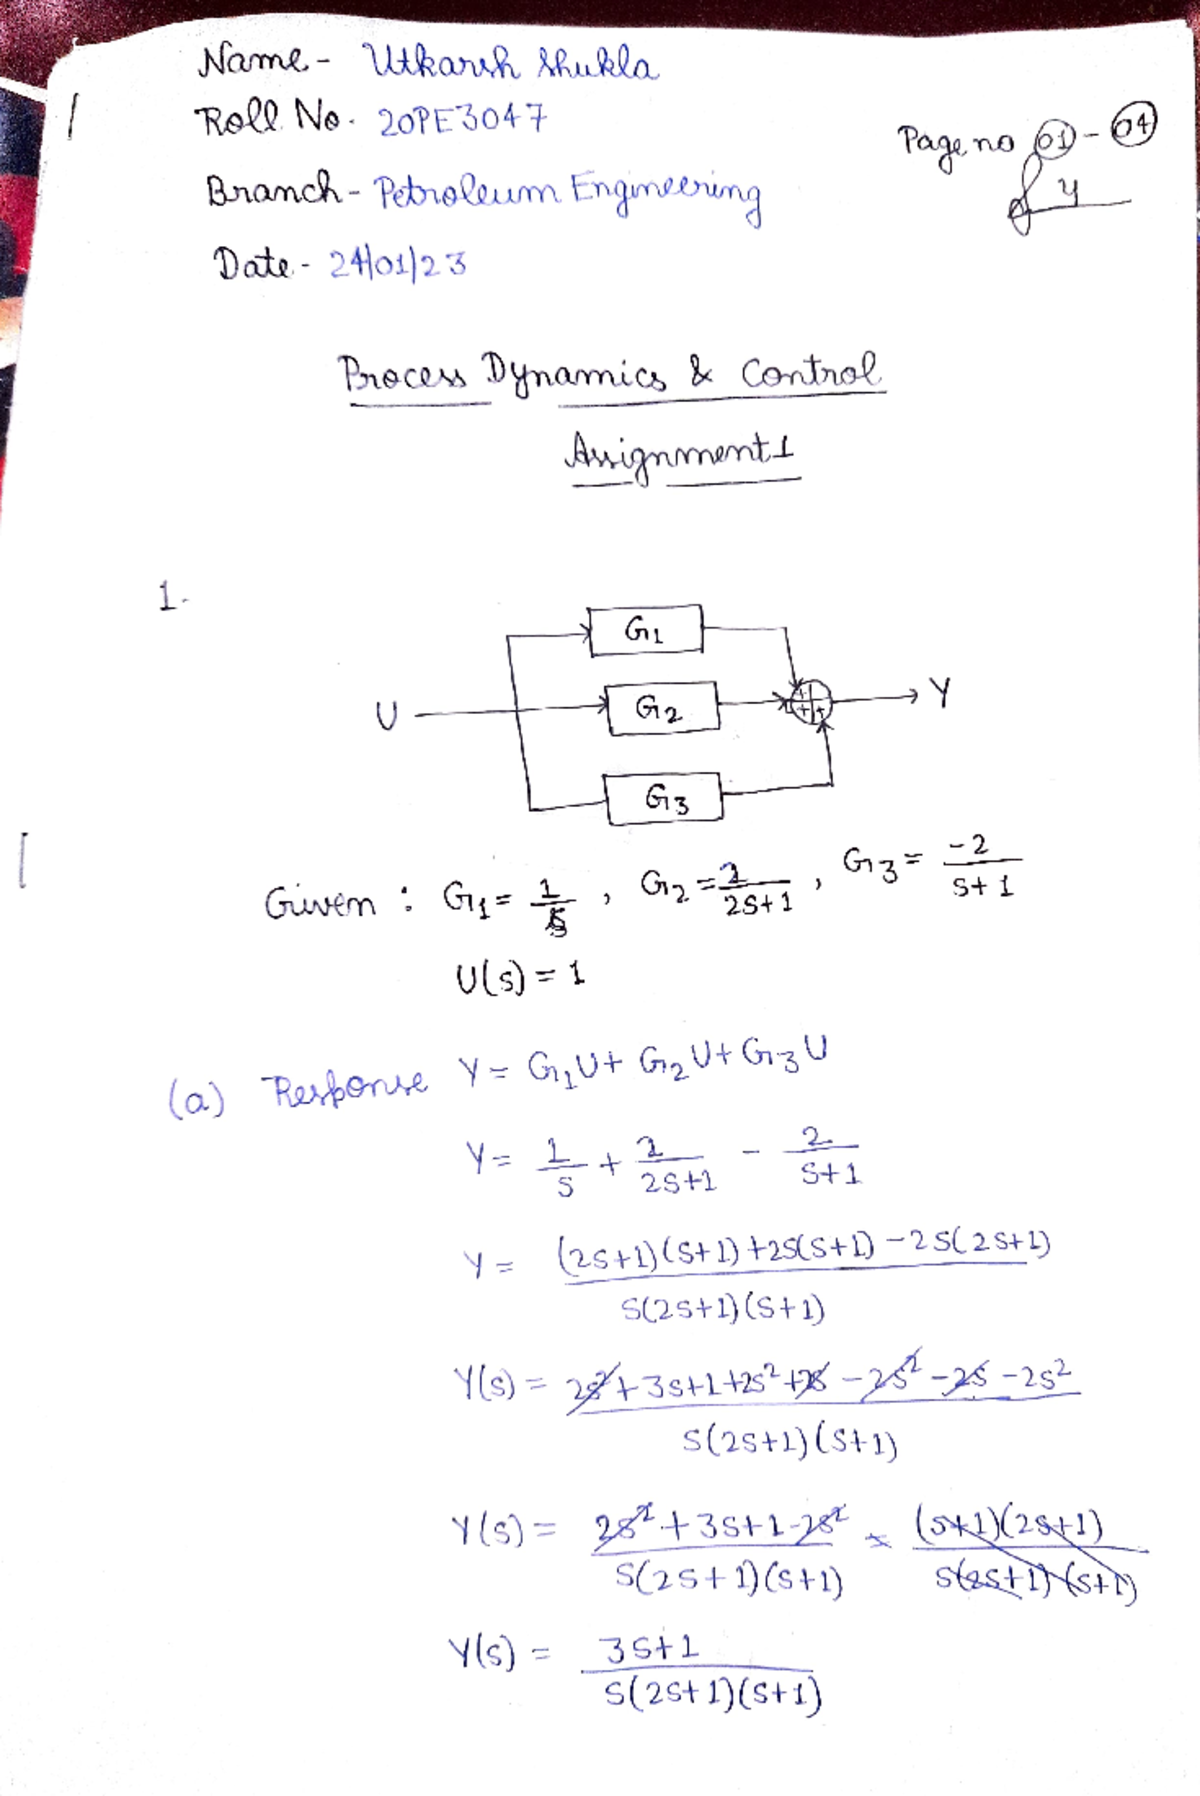 Name - Utkarsh Shukla
Roll No. 20PE3047
Page no 01 - 04
Branch - Petroleum Engineering
Date - 24/01/23
Process Dynamics & Control
Assignment 1
1.
G1
U G2 Y
G3
Given : G1 = 1/s , G2 = 2/2s+1 , G3 = -2/s+1
U(s) = 1
(a) Response Y = G1U + G2U + G3U
Y = 1/s + 2/2s+1 - 2/s+1
Y = (2s+1)(s+1)+2s(s+1)-2s(2s+1) / s(2s+1)(s+1)
Y(s) = 2s²+3s+1+2s²+2s-2s²-2s-2s² / s(2s+1)(s+1)
Y(s) = 2s²+3s+1-2s² / s(2s+1)(s+1) = (s+1)(2s+1) / s(2s+1)(s+1)
Y(s) = 3s+1 / s(2s+1)(s+1)